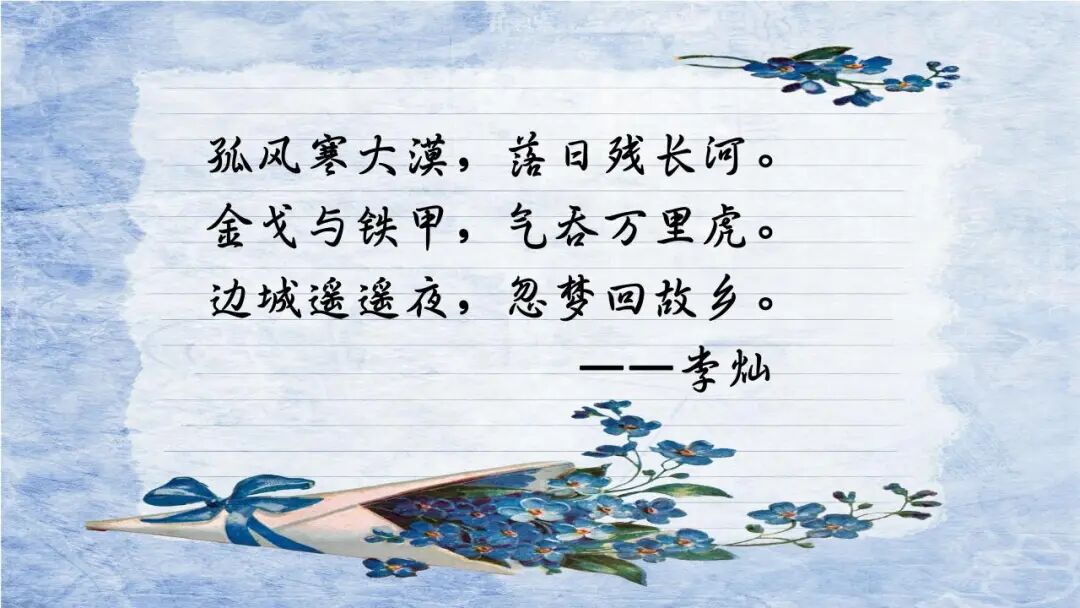 孤风寒大漠，落日残长河。
金戈与铁甲，气吞万里虎。
边城遥遥夜，忽梦回故乡。
——李灿